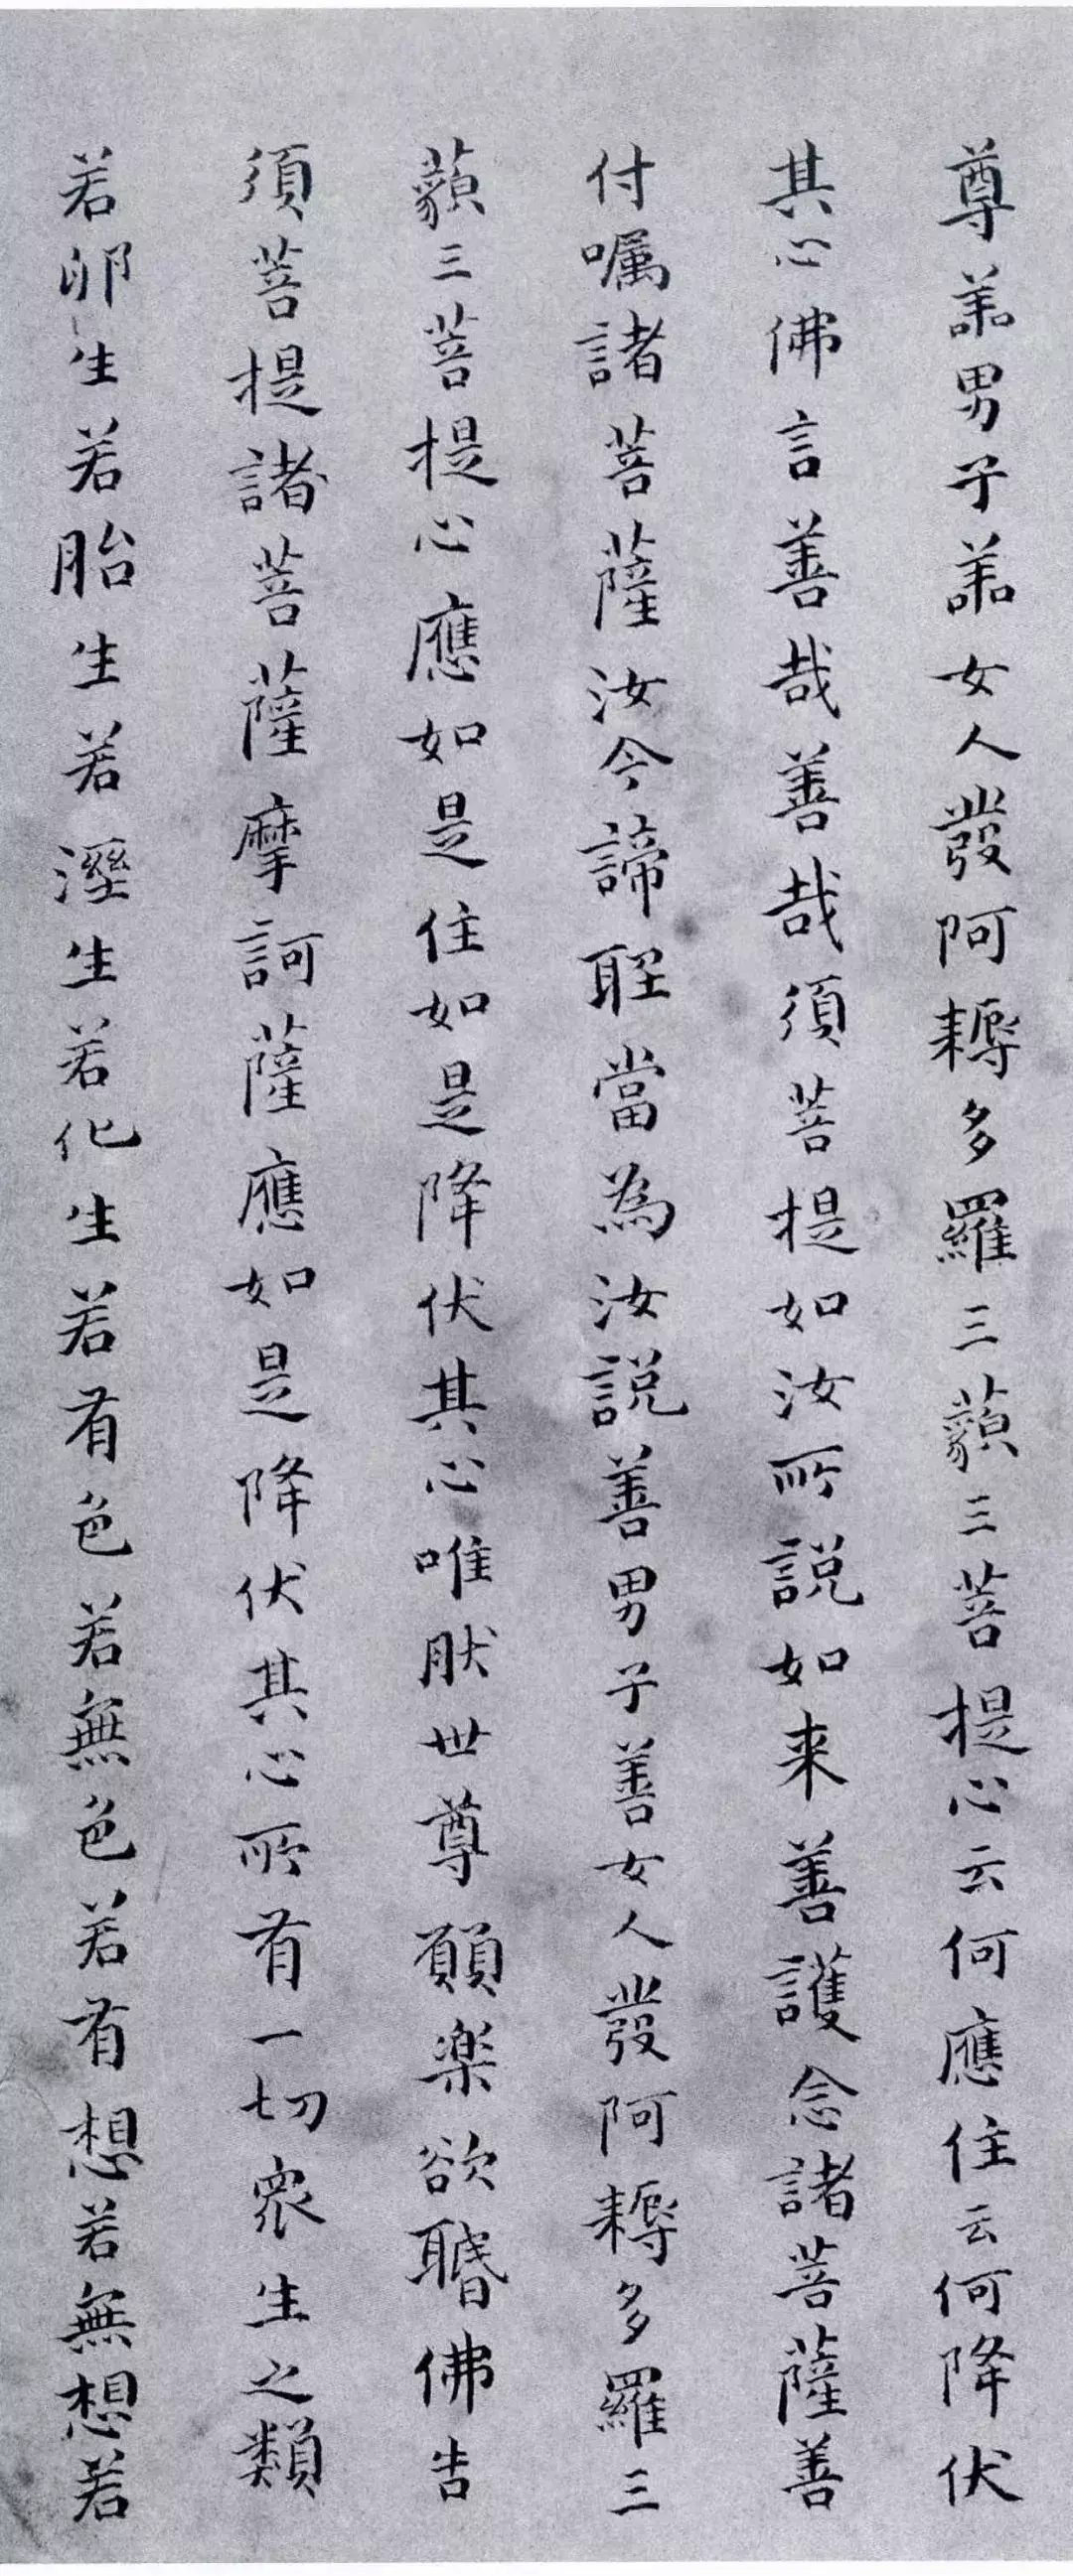 尊善男子善女人發阿耨多羅三藐三菩提心云何應住云何降伏
其心佛言善哉善哉須菩提如汝所説如来善護念諸菩薩善
付嘱諸菩薩汝今諦聽當為汝説善男子善女人發阿耨多羅三
藐三菩提心應如是住如是降伏其心唯然世尊願楽欲聞佛告
須菩提諸菩薩摩訶薩應如是降伏其心所有一切眾生之類
若卵生若胎生若溼生若化生若有色若無色若有想若無想若